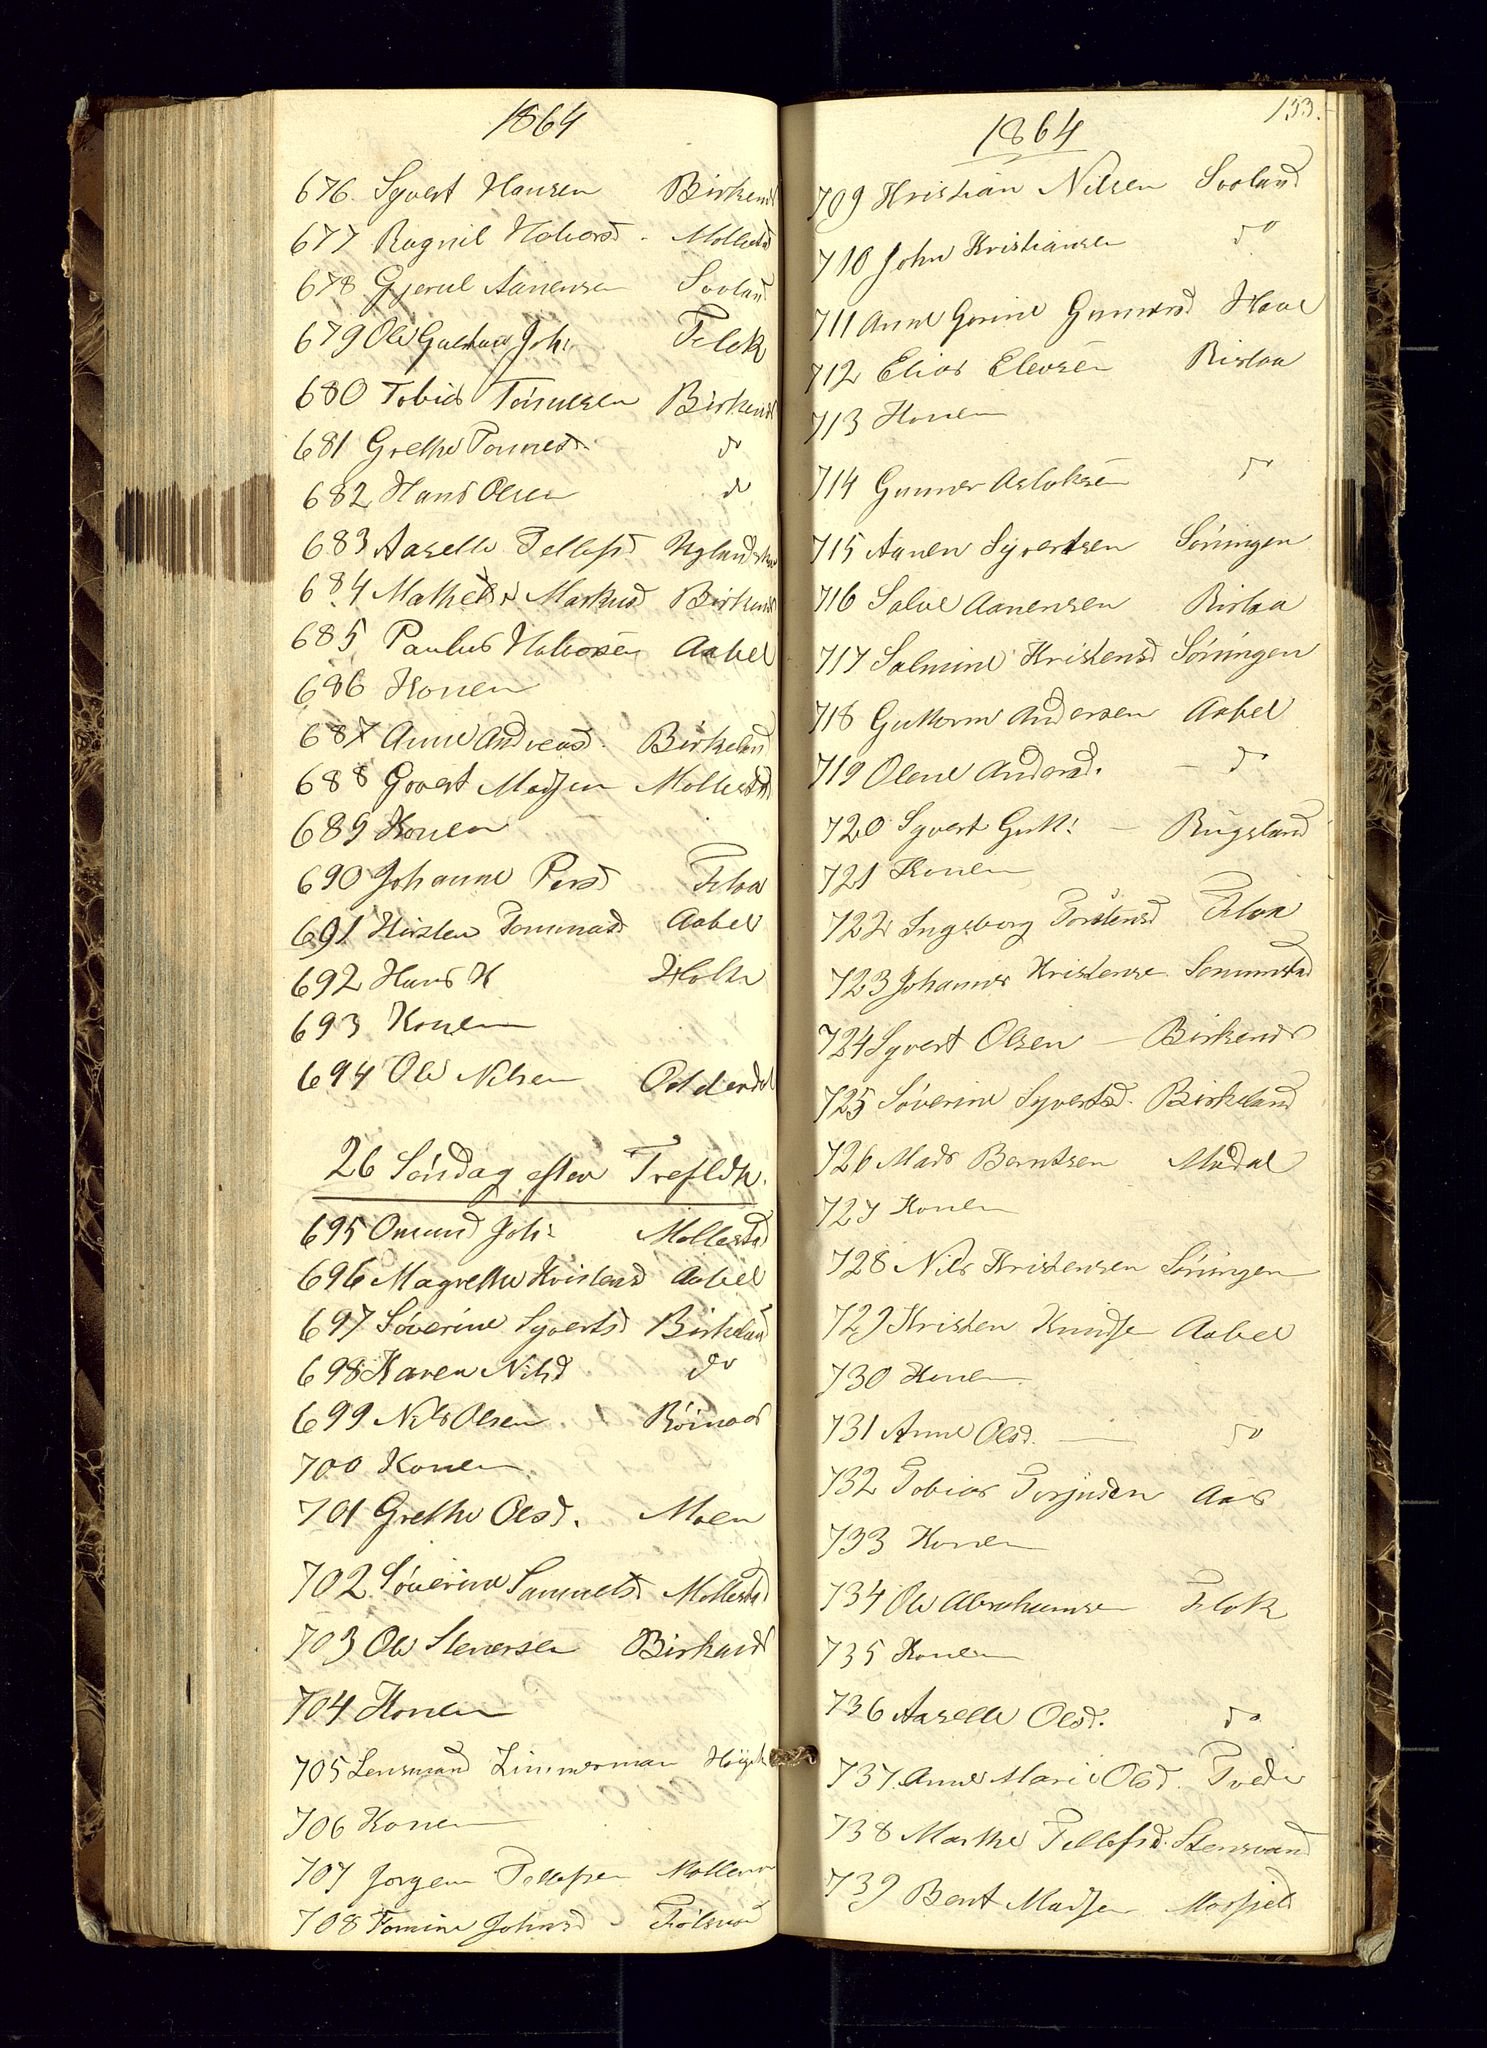 1864
676 Syvert Hansen Birkend
677 Ragnil Halvorsd. Mollestad
678 Gjerul Aanensen Sooland
679 Ole Gustav Joh: Flak
680 Tobias Tønnesen Birkend
681 Grethe Tonnesd. do
682 Hans Olsen do
683 Aaselle Tellefsd
684 Mathea Markusd Birkend
685 Paulus Halvorsen Aabel
686 Konen
687 Anne Andreasd. Birkeland
688 Govert Madsen Mollestad
689 Konen
690 Johanne Persd Flaa
691 Kirsten Tommasd Aabel
692 Hans K Holte
693 Konen
694 Ole Nilsen Oddersdal
26 Søndag efter Trefldh.
695 Omund Joh: Mollestad
696 Magrethe Kristensd Aabel
697 Søverine Syvertsd Birkeland
698 Karen Nilsd do
699 Nils Olsen Røinaas
700 Konen
701 Grethe Olsd. Moen
702 Søverine Samuelsd Mollestad
703 Ole Steversen Birkend
704 Konen
705 Lensmand Zimmerman
706 Konen
707 Jorgen Tellefsen Mollemo
708 Tomine Johnsd
153.
1864
709 Kristian Nilsen Sooland
710 John Kristiansen do
711 Anne Gorine Gunnersd
712 Elias Elevsen Rislaa
713 Konen
714 Gunner Aslaksen do
715 Aanen Syvertsen Søningen
716 Salve Aanensen Rislaa
717 Salmine Kristensd Søningen
718 Guttorm Andersen Aabel
719 Olene Andersd. – do
720 Syvert Gutt: – Rugsland
721 Konen
722 Ingeborg Torstensd Flak
723 Johannes Kristense Senumstad
724 Syvert Olsen – Birkends
725 Søverine Syvertsd. Birkeland
726 Mads Berntsen Medal
727 Konen
728 Nils Kristensen Søningen
729 Kristen Knudse Aabel
730 Konen
731 Anne Olsd. – do
732 Tobias Terjusen Aas
733 Konen
734 Ole Abrahamse Flak
735 Konen
736 Aaselle Olsd. do
737 Anne Marie Olsd. Tvede
738 Marthe Tellefsd. Stensvand
739 Bent Madsen Mosfjeld